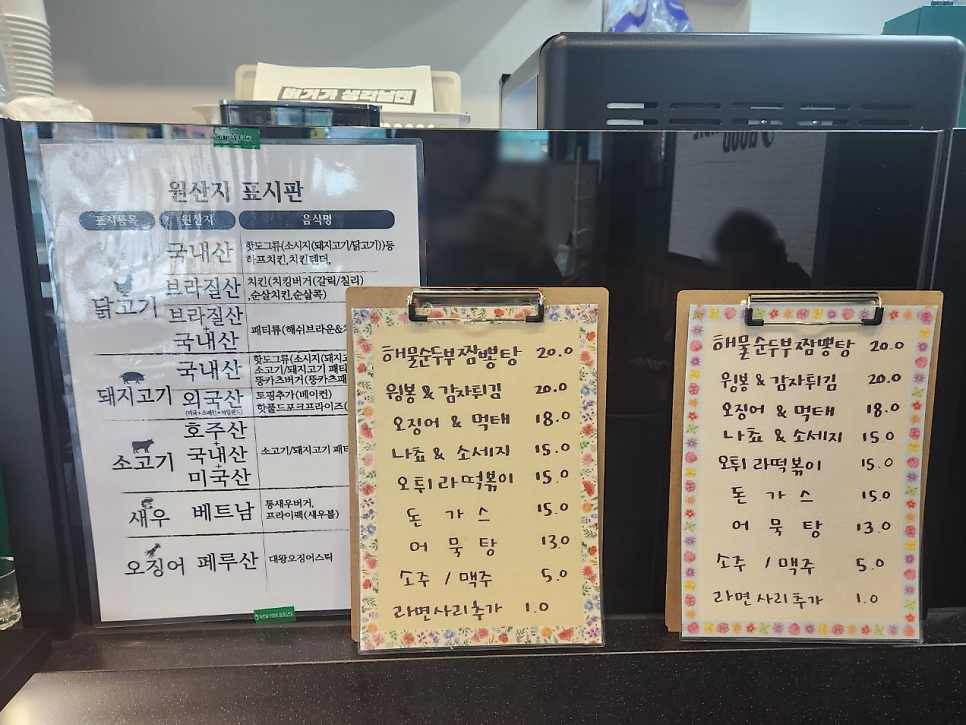 버거가 생각날땐
원산지 표시판
표시품목 원산지 음식명
닭고기
국내산 핫도그류(소시지(돼지고기/닭고기))등
하프치킨,치킨텐더,
브라질산 치킨(치킹버거(갈릭/칠리)
,순살치킨,순살콕)
브라질산
+
국내산
패티류(해쉬브라운&
돼지고기
국내산 핫도그류(소시지(돼지고
소고기/돼지고기 패티
뚱카츠버거(뚱카츠패
외국산 토핑추가(베이컨)
핫풀드포크프라이즈(
소고기
호주산
+
국내산
+
미국산
소고기/돼지고기 패티
새우 베트남 통새우버거,
프라이팩(새우볼)
오징어 페루산 대왕오징어스틱
해물순두부짬뽕탕 20.0
윙봉 & 감자튀김 20.0
오징어 & 먹태 18.0
나쵸 & 소세지 15.0
오튀 라떡볶이 15.0
돈 가 스 15.0
어 묵 탕 13.0
소주 / 맥주 5.0
라면사리추가 1.0
해물순두부짬뽕탕 20.0
윙봉 & 감자튀김 20.0
오징어 & 먹태 18.0
나쵸 & 소세지 15.0
오튀 라떡볶이 15.0
돈 가 스 15.0
어 묵 탕 13.0
소주 / 맥주 5.0
라면사리추가 1.0